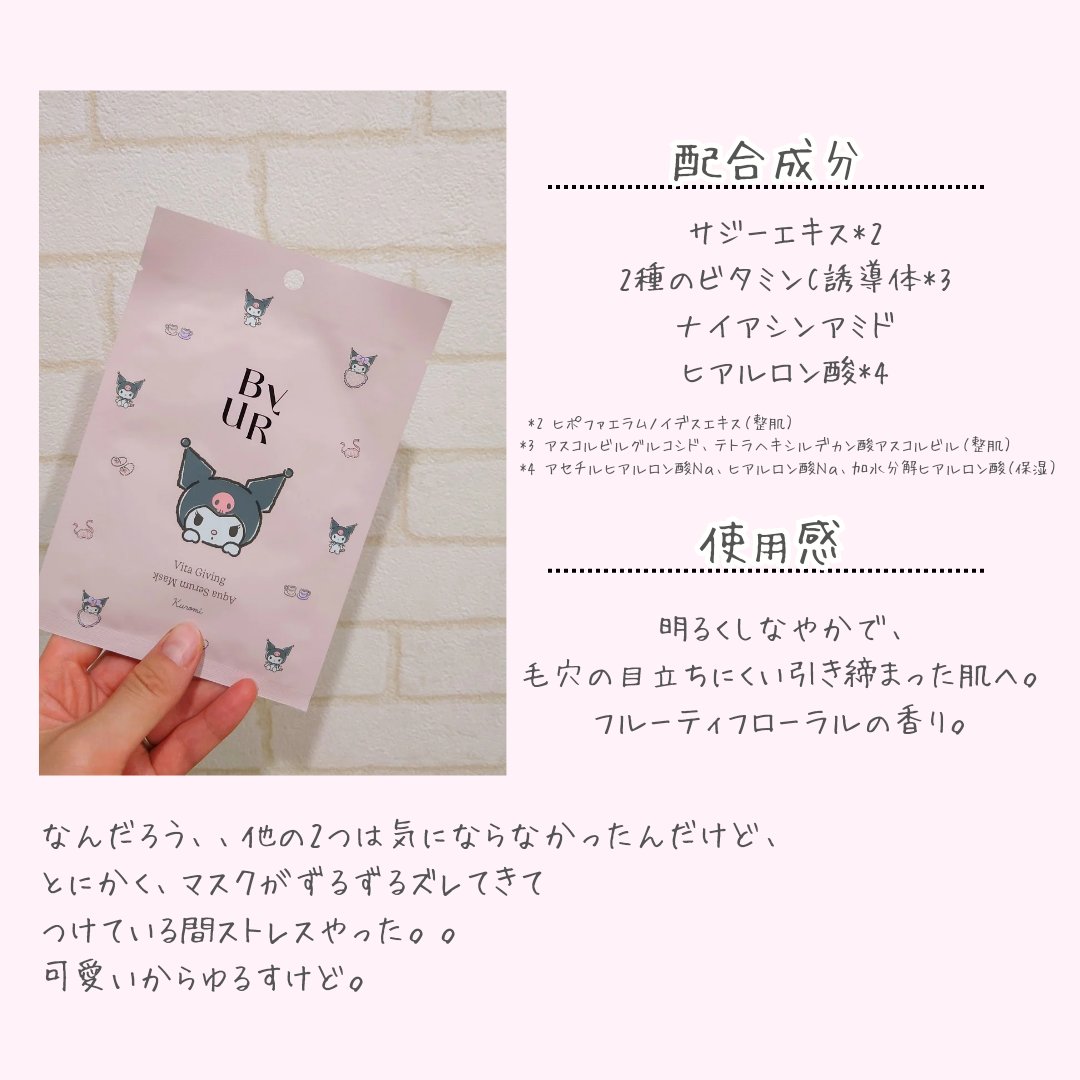 配合成分
サジーエキス*2
2種のビタミンC誘導体*3
ナイアシンアミド
ヒアルロン酸*4
*2 ヒポファエラムノイデスエキス(整肌)
*3 アスコルビルグルコシド、テトラヘキシルデカン酸アスコルビル(整肌)
*4 アセチルヒアルロン酸Na、ヒアルロン酸Na、加水分解ヒアルロン酸(保湿)
BY
UR
Vita Giving
Aqua Serum Mask
Kuromi
使用感
明るくしなやかで、
毛穴の目立ちにくい引き締まった肌へ。
フルーティフローラルの香り。
なんだろう、、他の2つは気にならなかったんだけど、
とにかく、マスクがずるずるズレてきて
つけている間ストレスやった。。
可愛いからゆるすけど。